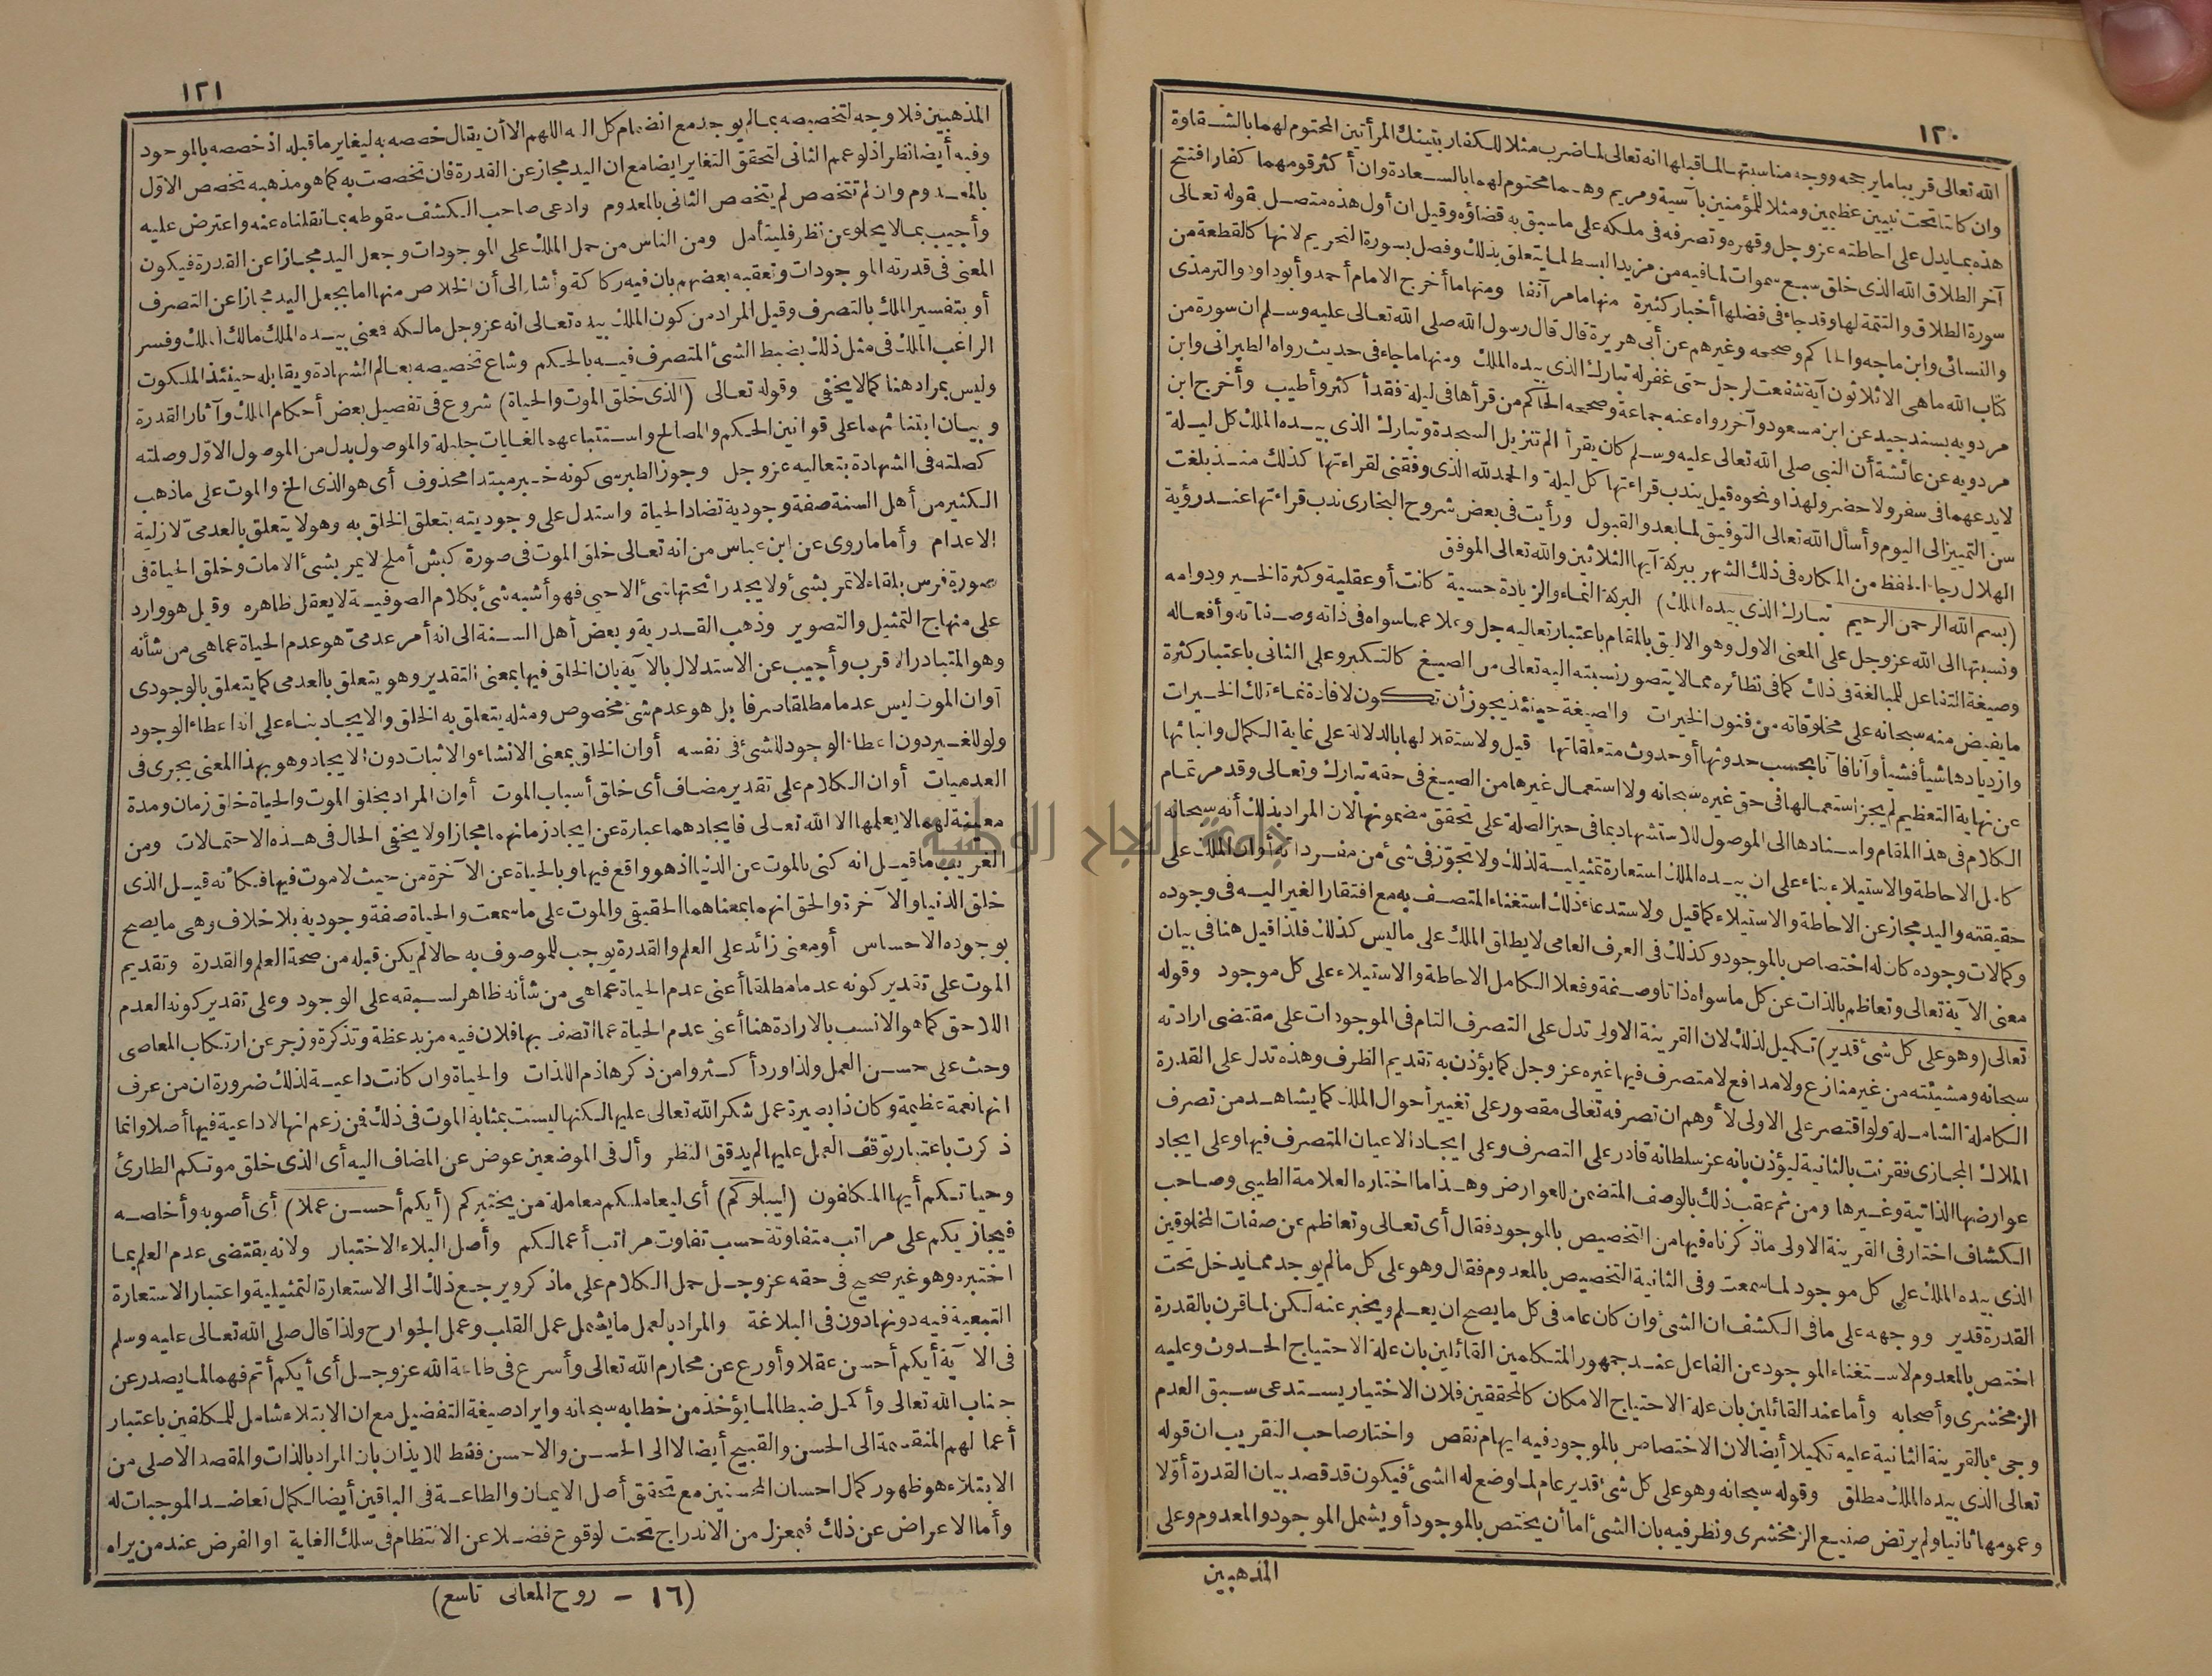 ١٢٠
الله تعالى قريبا ما يرجحه ووجه مناسبتها لما قبلها انه تعالى لما ضرب مثلا للكفار بتينك المرأتين المحتوم لهما بالشقاوة
وان كانتا تحت نبيين عظيمين ومثلا للمؤمنين بآسية ومريم وهما محتوم لهما بالسعادة وان أكثر قومهما كفار افتتح
هذه بما يدل على احاطته عز وجل وقهره وتصرفه فى ملكه على ما سبق به قضاؤه وقيل ان أول هذه متصل بقوله تعالى
آخر الطلاق الله الذى خلق سبع سموات لما فيه من مزيد البسط لما يتعلق بذلك وفصل بسورة التحريم لانها كالقطعة من
سورة الطلاق والتتمة لها وقد جاء فى فضلها أخبار كثيرة منها ما مر آنفا ومنها ما أخرج الامام أحمد وأبو داود والترمذى
والنسائى وابن ماجه والحاكم وصححه وغيرهم عن أبى هريرة قال قال رسول الله صلى الله تعالى عليه وسلم ان سورة من
كتاب الله ما هى الا ثلاثون آية شفعت لرجل حتى غفر له تبارك الذى بيده الملك ومنها ما جاء فى حديث رواه الطبرانى وابن
مردويه بسند جيد عن ابن مسعود وآخر رواه عنه جماعة وصححه الحاكم من قرأها فى ليلة فقد أكثر وأطيب وأخرج ابن
مردويه عن عائشة أن النبى صلى الله تعالى عليه وسلم كان يقرأ الم تنزيل السجدة وتبارك الذى بيده الملك كل ليلة
لا يدعهما فى سفر ولا حضر ولهذا ونحوه قيل يندب قراءتها كل ليلة والحمد لله الذى وفقنى لقراءتها كذلك منذ بلغت
سن التمييز الى اليوم وأسأل الله تعالى التوفيق لما بعد والقبول ورأيت فى بعض شروح البخارى ندب قراءتها عند رؤية
الهلال رجاء الحفظ من المكاره فى ذلك الشهر ببركة آيها الثلاثين والله تعالى الموفق
(بسم الله الرحمن الرحيم تبارك الذى بيده الملك) البركة النماء والزيادة حسية كانت أو عقلية وكثرة الخير ودوامه
ونسبتها الى الله عز وجل على المعنى الاول وهو الاليق بالمقام باعتبار تعاليه جل وعلا عما سواه فى ذاته وصفاته وأفعاله
وصيغة التفاعل للمبالغة فى ذلك كما فى نظائره مما لا يتصور نسبته اليه تعالى من الصيغ كالتكبر وعلى الثانى باعتبار كثرة
ما يفيض منه سبحانه على مخلوقاته من فنون الخيرات والصيغة حينئذ يجوز أن تكون لافادة نماء تلك الخيرات
وازديادها شيأ فشيأ وآنا فآنا بحسب حدوثها أو حدوث متعلقاتها قيل ولاستقلالها بالدلالة على غاية الكمال وانبائها
عن نهاية التعظيم لم يجز استعمالها فى حق غيره سبحانه ولا استعمال غيرها من الصيغ فى حقه تبارك وتعالى وقد مر تمام
الكلام فى هذا المقام واسنادها الى الموصول للاستشهاد بما فى حيز الصلة على تحقق مضمونها لان المراد بذلك أنه سبحانه
كامل الاحاطة والاستيلاء بناء على ان بيده الملك استعارة تمثيلية لذلك ولا تجوّز فى شئ من مفرداته أو ان الملك على
حقيقته واليد مجاز عن الاحاطة والاستيلاء كما قيل ولاستدعاء ذلك استغناء المتصف به مع افتقار الغير اليه فى وجوده
وكمالات وجوده كان له اختصاص بالموجود وكذلك فى العرف العامى لا يطلق الملك على ما ليس كذلك فلذا قيل هنا فى بيان
معنى الآية تعالى وتعاظم بالذات عن كل ما سواه ذاتا وصفة وفعلا الكامل الاحاطة والاستيلاء على كل موجود وقوله
تعالى (وهو على كل شئ قدير) تكميل لذلك لان القرينة الاولى تدل على التصرف التام فى الموجودات على مقتضى ارادته
سبحانه ومشيئته من غير منازع ولا مدافع لا متصرف فيها غيره عز وجل كما يؤذن به تقديم الظرف وهذه تدل على القدرة
الكاملة الشاملة ولو اقتصر على الاولى لأوهم ان تصرفه تعالى مقصور على تغيير أحوال الملك كما يشاهد من تصرف
الملاك المجازى فقرنت بالثانية ليؤذن بانه عز سلطانه قادر على التصرف وعلى ايجاد الاعيان المتصرف فيها وعلى ايجاد
عوارضها الذاتية وغيرها ومن ثم عقب ذلك بالوصف المتضمن للعوارض وهذا ما اختاره العلامة الطيبى وصاحب
الكشاف اختار فى القرينة الاولى ما ذكرناه فيها من التخصيص بالموجود فقال أى تعالى وتعاظم عن صفات المخلوقين
الذى بيده الملك على كل موجود لما سمعت وفى الثانية التخصيص بالمعدوم فقال وهو على كل ما لم يوجد مما يدخل تحت
القدرة قدير ووجهه على ما فى الكشف ان الشئ وان كان عاما فى كل ما يصح ان يعلم ويخبر عنه لكن لما قرن بالقدرة
اختص بالمعدوم لاستغناء الموجود عن الفاعل عند جمهور المتكلمين القائلين بان علة الاحتياج الحدوث وعليه
الزمخشرى وأصحابه وأما عند القائلين بان علة الاحتياج الامكان كالمحققين فلان الاختيار يستدعى سبق العدم
وجىء بالقرينة الثانية عليه تكميلا أيضا لان الاختصاص بالموجود فيه ايهام نقص واختار صاحب التقريب ان قوله
تعالى الذى بيده الملك مطلق وقوله سبحانه وهو على كل شئ قدير عام لما وضع له الشئ فيكون قد قصد بيان القدرة أوّلا
وعمومها ثانيا ولم يرتض صنيع الزمخشرى ونظر فيه بان الشئ اما أن يختص بالموجود أو يشمل الموجود والمعدوم وعلى
المذهبين
١٢١
المذهبين فلا وجه لتخصيصه بما لم يوجد مع انضمام كل اليه اللهم الا أن يقال خصصه به ليغاير ما قبله اذ خصصه بالموجود
وفيه أيضا نظر اذ لو عمم الثانى لتحقق التغاير ايضا مع ان اليد مجاز عن القدرة فان تخصصت به كما هو مذهبه تخصص الاوّل
بالمعدوم وان لم تتخصص لم يتخصص الثانى بالمعدوم وادعى صاحب الكشف سقوطه بما نقلناه عنه واعترض عليه
وأجيب بما لا يخلو عن نظر فليتأمل ومن الناس من حمل الملك على الموجودات وجعل اليد مجازا عن القدرة فيكون
المعنى فى قدرته الموجودات وتعقبه بعضهم بان فيه ركاكة وأشار الى أن الخلاص منها اما بجعل اليد مجازا عن التصرف
أو بتفسير الملك بالتصرف وقيل المراد من كون الملك بيده تعالى انه عز وجل مالكه فمعنى بيده الملك مالك الملك وفسر
الراغب الملك فى مثل ذلك بضبط الشئ المتصرف فيه بالحكم وشاع تخصيصه بعالم الشهادة ويقابله حينئذ الملكوت
وليس بمراد هنا كما لا يخفى وقوله تعالى (الذى خلق الموت والحياة) شروع فى تفصيل بعض أحكام الملك وآثار القدرة
وبيان ابتنائهما على قوانين الحكم والمصالح واستتباعهما الغايات جليلة والموصول بدل من الموصول الاوّل وصلته
كصلته فى الشهادة بتعاليه عز وجل وجوز الطبرسى كونه خبر مبتدا محذوف أى هو الذى الخ والموت على ما ذهب
الكثير من أهل السنة صفة وجودية تضاد الحياة واستدل على وجوديته بتعلق الخلق به وهو لا يتعلق بالعدمىّ لازلية
الاعدام وأما ما روى عن ابن عباس من انه تعالى خلق الموت فى صورة كبش أملح لا يمر بشئ الا مات وخلق الحياة فى
صورة فرس بلقاء لا تمر بشئ ولا يجد رائحتها شئ الا حيى فهو أشبه شئ بكلام الصوفية لا يعقل ظاهره وقيل هو وارد
على منهاج التمثيل والتصوير وذهب القدرية وبعض أهل السنة الى انه أمر عدمىّ هو عدم الحياة عما هى من شأنه
وهو المتبادر الاقرب وأجيب عن الاستدلال بالآية بان الخلق فيها بمعنى التقدير وهو يتعلق بالعدمى كما يتعلق بالوجودى
أو ان الموت ليس عدما مطلقا صرفا بل هو عدم شئ مخصوص ومثله يتعلق به الخلق والايجاد بناء على انه اعطاء الوجود
ولو للغير دون اعطاء الوجود للشئ فى نفسه أو ان الخلق بمعنى الانشاء والاثبات دون الايجاد وهو بهذا المعنى يجرى فى
العدميات أو ان الكلام على تقدير مضاف أى خلق أسباب الموت أو ان المراد بخلق الموت والحياة خلق زمان ومدة
معينة لهما لا يعلمها الا الله تعالى فايجادهما عبارة عن ايجاد زمانهما مجازا ولا يخفى الحال فى هذه الاحتمالات ومن
الغريب ما قيل انه كنى بالموت عن الدنيا اذ هو واقع فيها وبالحياة عن الآخرة من حيث لا موت فيها فكانه قيل الذى
خلق الدنيا والآخرة والحق انهما بمعناهما الحقيقى والموت على ما سمعت والحياة صفة وجودية بلا خلاف وهى ما يصح
بوجوده الاحساس أو معنى زائد على العلم والقدرة يوجب للموصوف به حالا لم يكن قبله من صحة العلم والقدرة وتقديم
الموت على تقدير كونه عدما مطلقا أعنى عدم الحياة عما هى من شأنه ظاهر لسبقه على الوجود وعلى تقدير كونه العدم
اللاحق كما هو الانسب بالارادة هنا أعنى عدم الحياة عما اتصف بها فلان فيه مزيد عظة وتذكرة وزجر عن ارتكاب المعاصى
وحث على حسن العمل ولذا ورد أكثروا من ذكر هاذم اللذات والحياة وان كانت داعية لذلك ضرورة ان من عرف
انها نعمة عظيمة وكان ذا بصيرة عمل شكر الله تعالى عليها لكنها ليست بمثابة الموت فى ذلك فمن زعم انها لا داعية فيها أصلا وانما
ذكرت باعتبار توقف العمل عليها لم يدقق النظر وأل فى الموضعين عوض عن المضاف اليه أى الذى خلق موتكم الطارئ
وحياتكم أيها المكلفون (ليبلوكم) أى ليعاملكم معاملة من يختبركم (أيكم أحسن عملا) أى أصوبه وأخلصه
فيجازيكم على مراتب متفاوتة حسب تفاوت مراتب أعمالكم وأصل البلاء الاختبار ولانه يقتضى عدم العلم بما
اختبره وهو غير صحيح فى حقه عز وجل حمل الكلام على ما ذكر ويرجع ذلك الى الاستعارة التمثيلية واعتبار الاستعارة
التبعية فيه دونها دون فى البلاغة والمراد بالعمل ما يشمل عمل القلب وعمل الجوارح ولذا قال صلى الله تعالى عليه وسلم
فى الآية أيكم أحسن عقلا وأورع عن محارم الله تعالى وأسرع فى طاعة الله عز وجل أى أيكم أتم فهما لما يصدر عن
جناب الله تعالى وأكمل ضبطا لما يؤخذ من خطابه سبحانه وايراد صيغة التفضيل مع ان الابتلاء شامل للمكلفين باعتبار
أعمالهم المنقسمة الى الحسن والقبيح أيضا لا الى الحسن والاحسن فقط للايذان بان المراد بالذات والمقصد الاصلى من
الابتلاء هو ظهور كمال احسان المحسنين مع تحقق أصل الايمان والطاعة فى الباقين أيضا لكمال تعاضد الموجبات له
وأما الاعراض عن ذلك فبمعزل من الاندراج تحت لوقوع فضلا عن الانتظام فى سلك الغاية او الغرض عند من يراه
(١٦ – روح المعانى تاسع)
جامعة النجاح الوطنية